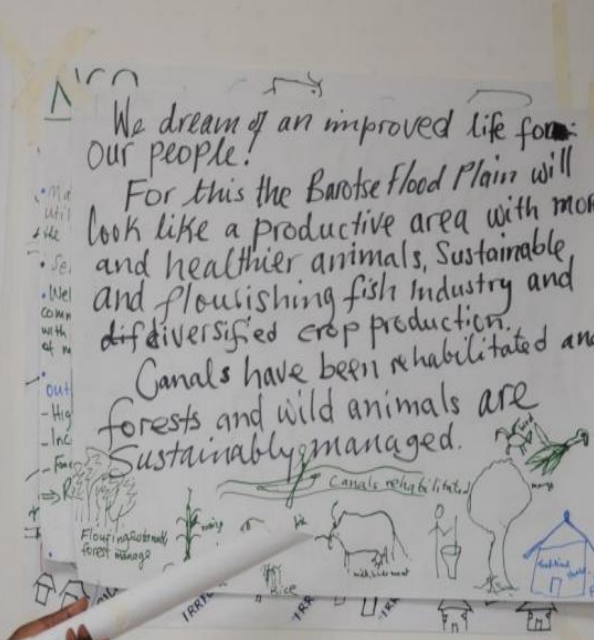 We dream of an improved life for
our people!
For this the Barotse Flood Plain will
look like a productive area with mor
and healthier animals, Sustainable
and flourishing fish Industry and
diversified crop production.
Canals have been rehabilitated and
forests and wild animals are
Sustainably managed.
Canals rehabilitated
forest manage
Rice
Wel
comm
with
of m
out
- Hig
- Inc